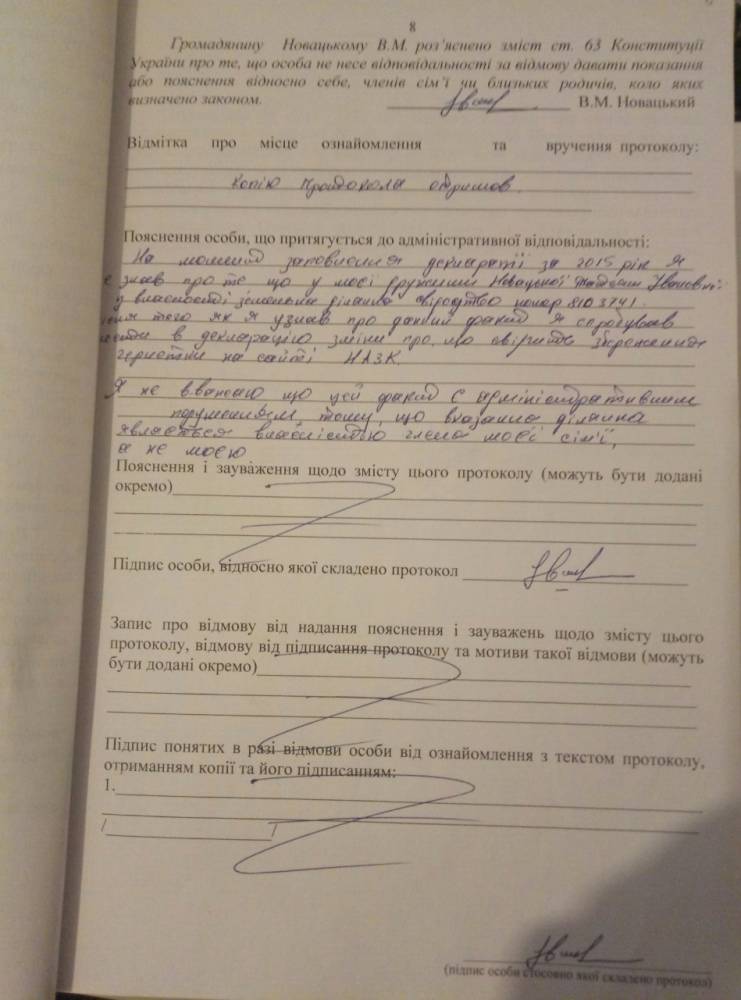 8
Громадянину Новацькому В.М. роз'яснено зміст ст. 63 Конституції
України про те, що особа не несе відповідальності за відмову давати показання
або пояснення відносно себе, членів сім'ї чи близьких родичів, коло яких
визначено законом. В.М. Новацький
Відмітка про місце ознайомлення та вручення протоколу:
копію протокола отримав.
Пояснення особи, що притягується до адміністративної відповідальності:
На момент заповнення декларації за 2015 рік я
знав про те що у моєї дружини Новацької Івановни
у власності земельна ділянка свідоцтво номер 8103741.
того як я узнав про даний факт я спробував
в декларацію зміни про, що свідчить збереження
чернетки на сайті НАЗК.
Я не вважаю що цей факт є адміністративним
порушенням тому, що вказана ділянка
являється власністю члена моєї сім'ї,
а не моєю
Пояснення і зауваження щодо змісту цього протоколу (можуть бути додані
окремо)
Підпис особи, відносно якої складено протокол
Запис про відмову від надання пояснення і зауважень щодо змісту цього
протоколу, відмову від підписання протоколу та мотиви такої відмови (можуть
бути додані окремо)
Підпис понятих в разі відмови особи від ознайомлення з текстом протоколу,
отриманням копії та його підписанням:
1.
/ /
(підпис особи стосовно якої складено протокол)